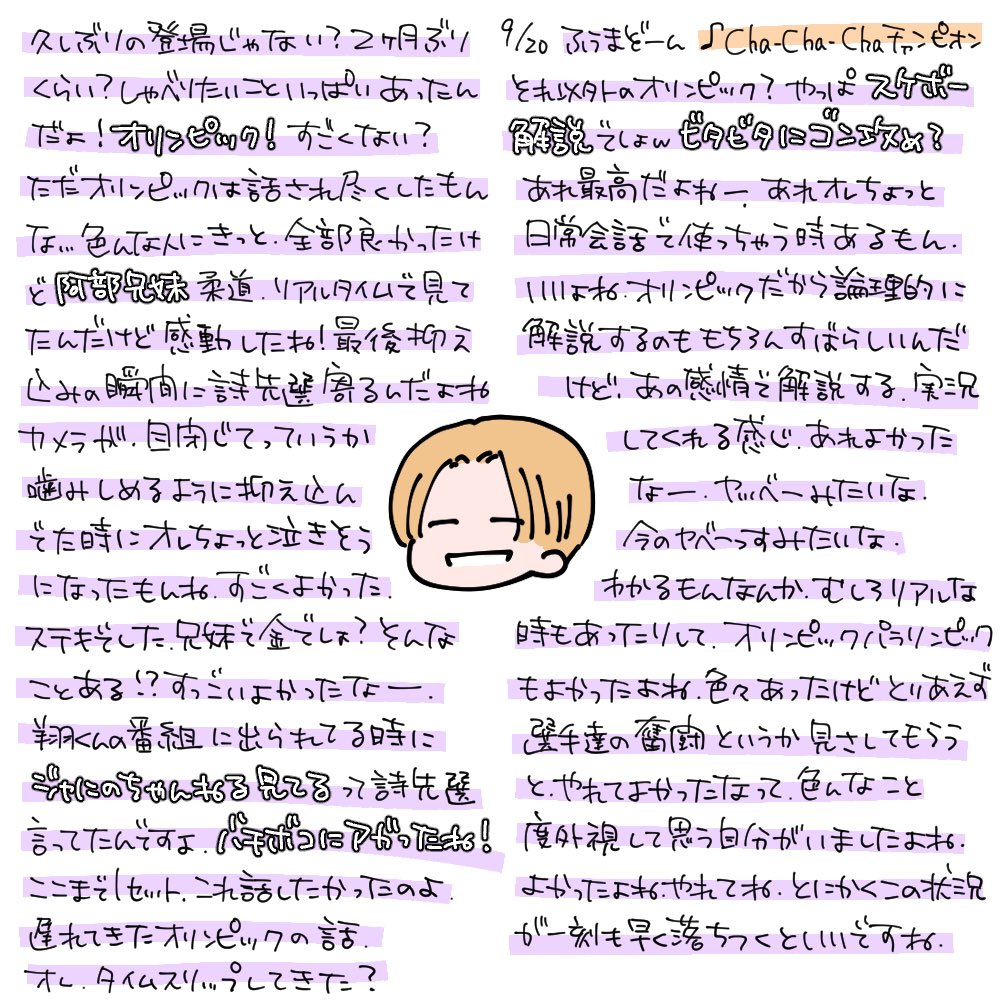 9/20 ふうまどーん ♪Cha-Cha-Chaチャンピオン
久しぶりの登場じゃない?2ヶ月ぶり
くらい?しゃべりたいこといっぱいあったん
だよ!オリンピック!すごくない?
ただオリンピックは話され尽くしたもん
な…色んな人にきっと、全部良かったけ
ど阿部兄妹柔道、リアルタイムで見て
たんだけど感動したね!最後抑え
込みの瞬間に詩先選寄るんだよね
カメラが、目閉じてっていうか
噛みしめるように抑え込ん
でた時にオレちょっと泣きそう
になったもんね、すごくよかった、
ステキでした、兄妹で金でしょ?そんな
ことある!?すっごいよかったなー、
翔くんの番組に出られてる時に
ジャにのちゃんねる見てるって詩先選
言ってたんですよ、バキボコにアがったね!
ここまで1セット、これ話したかったのよ、
遅れてきたオリンピックの話、
オレ、タイムスリップしてきた?
それ以外のオリンピック?やっぱスケボー
解説でしょw ビタビタにゴン攻め?
あれ最高だよねー、あれオレちょっと
日常会話で使っちゃう時あるもん、
いいよね、オリンピックだから論理的に
解説するのももちろんすばらしいんだ
けど、あの感情で解説する、実況
してくれる感じ、あれよかった
なー、ヤッベーみたいな、
今のヤベーっすみたいな、
わかるもんなんか、むしろリアルな
時もあったりして、オリンピックパラリンピック
もよかったよね、色々あったけどとりあえず
選手達の奮闘というか見さしてもらう
と、やれてよかったなって、色んなこと
度外視して思う自分がいましたよね、
よかったよねやれてね、とにかくこの状況
が一刻も早く落ちつくといいですね、